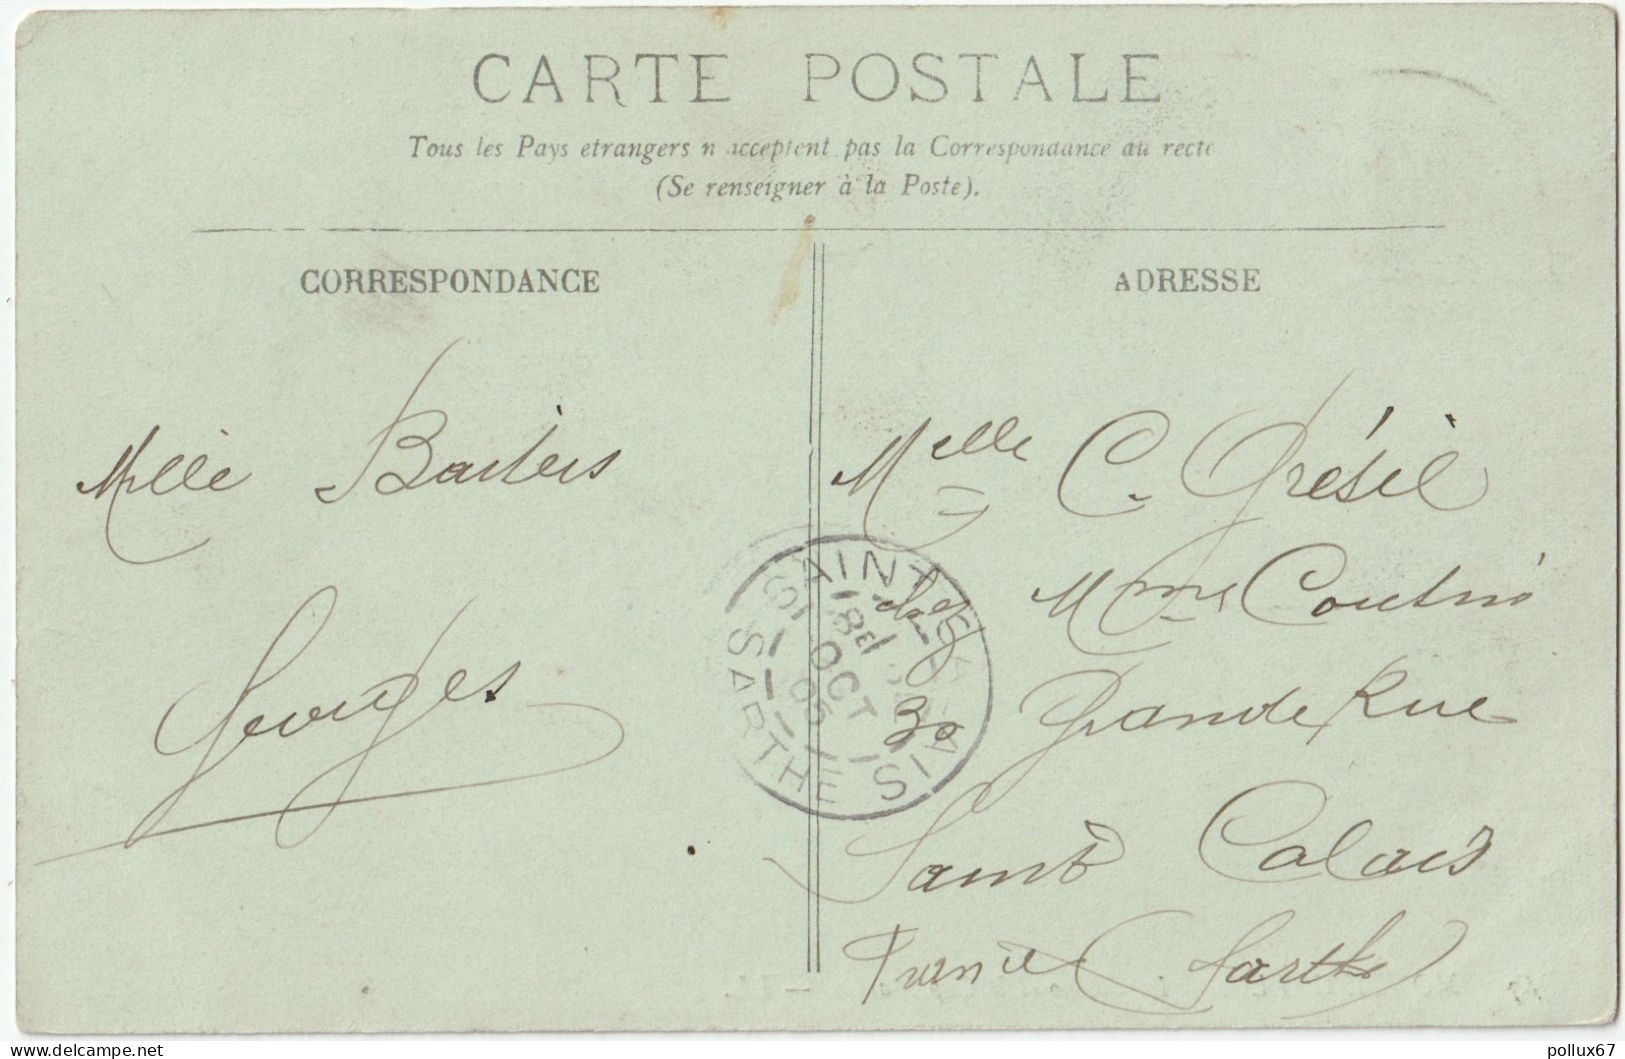 CARTE POSTALE
Tous les Pays etrangers n acceptent pas la Correspondance au recto
(Se renseigner à la Poste).
CORRESPONDANCE
ADRESSE
Mille Baisers
Georges
Melle C. Grésil
chez Mme Coutin
30 Grande Rue
Saint Calais
France Sarthe
SAINT-CALAIS
18 OCT 05
SARTHE
delcampe.net
pollux67